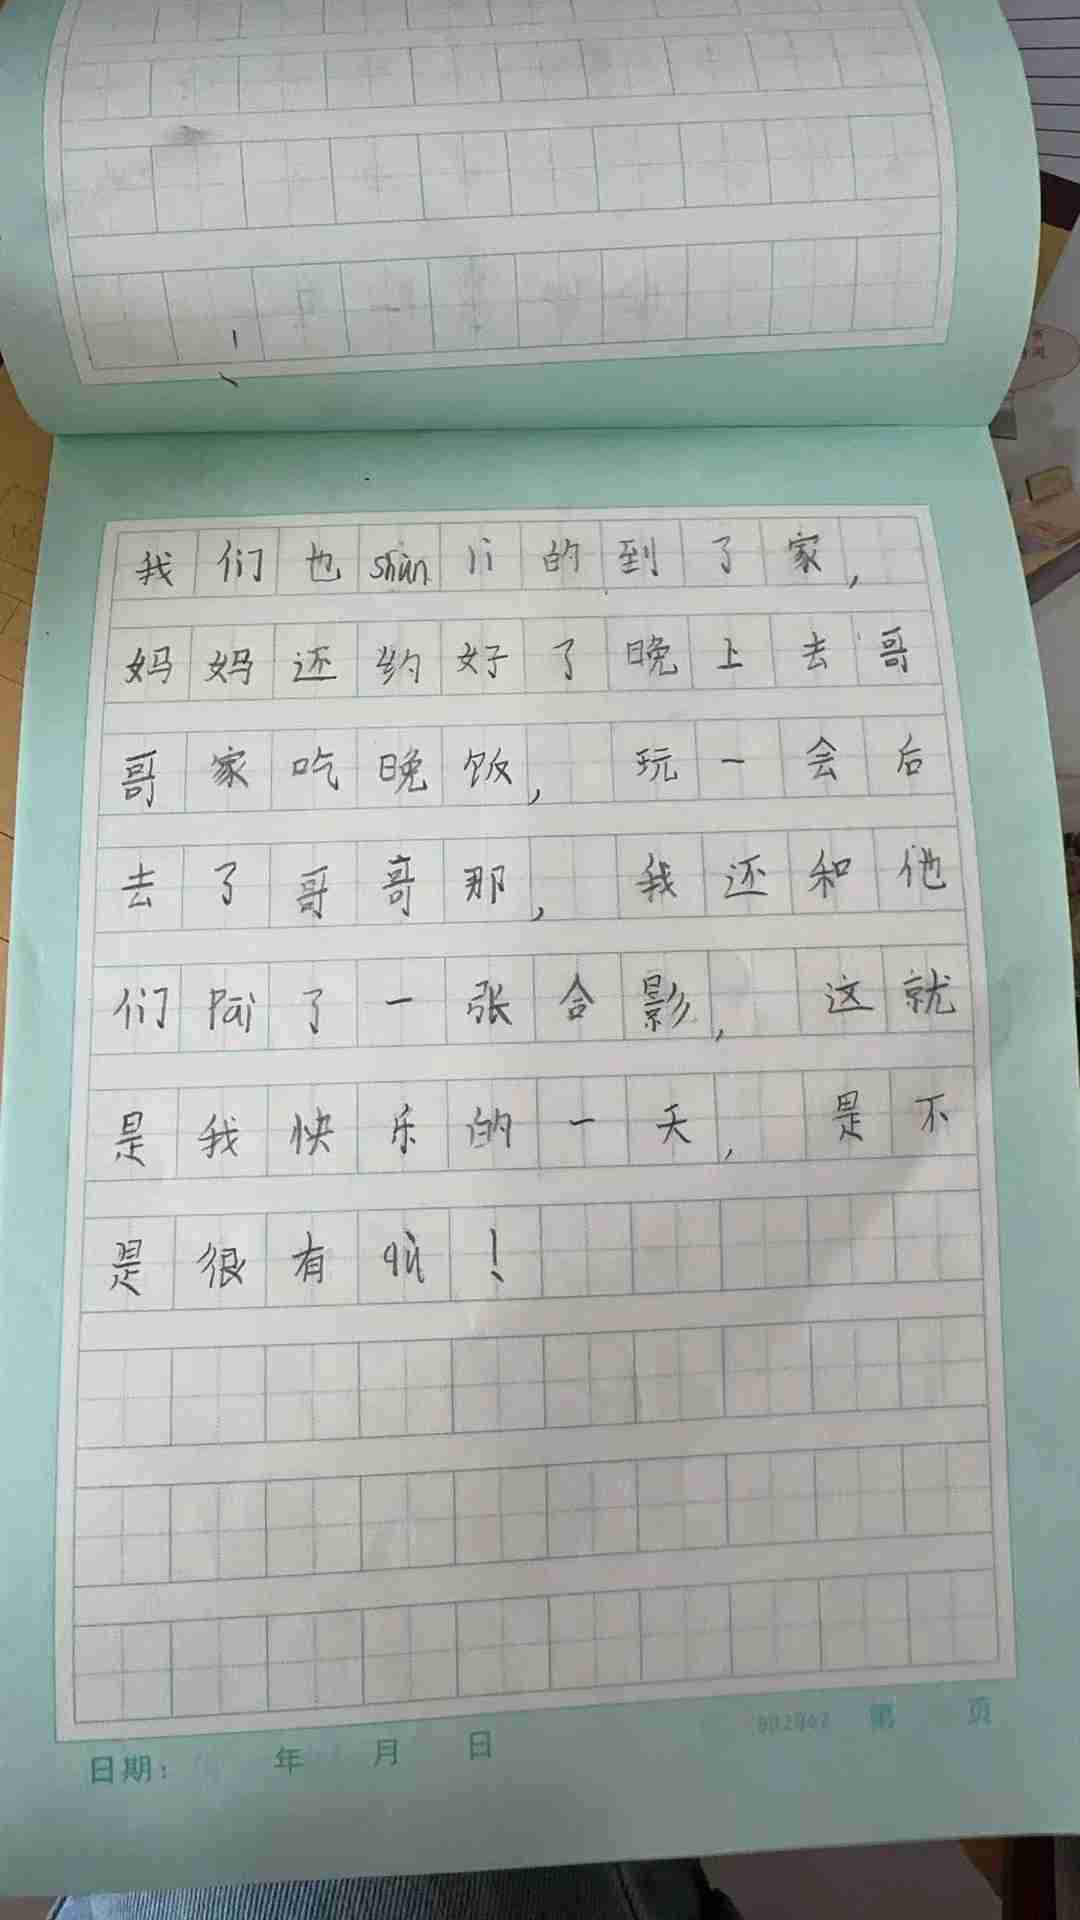 我们也shùn lì的到了家,
妈妈还约好了晚上去哥
哥家吃晚饭,玩一会后
去了哥哥那,我还和他
们Pāi了一张合影,这就
是我快乐的一天,是不
是很有qù!
日期: 年 月 日 第 页